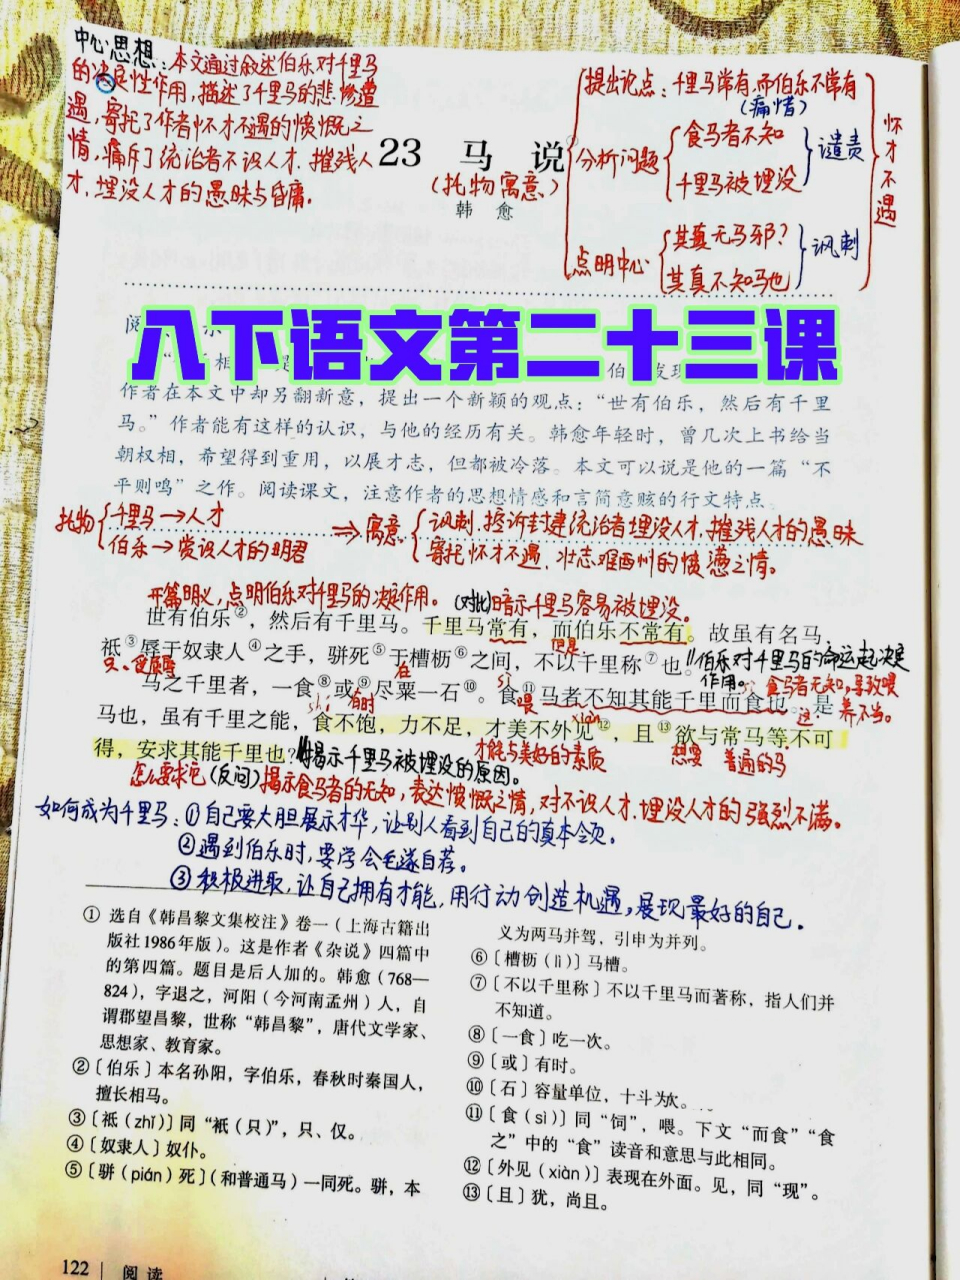 中心思想：本文通过叙述伯乐对千里马
的决定性作用，描述了千里马的悲惨遭
遇，寄托了作者怀才不遇的愤慨之
情，痛斥了统治者不识人才、摧残人
才、埋没人才的愚昧与昏庸。
23 马 说
(托物寓意)
韩 愈
提出论点：千里马常有，而伯乐不常有
(痛惜)
分析问题
食马者不知
千里马被埋没
谴责
点明中心
其真无马邪？
其真不知马也
讽刺
怀才不遇
八下语文第二十三课
作者在本文中却另翻新意，提出一个新颖的观点：“世有伯乐，然后有千里
马。”作者能有这样的认识，与他的经历有关。韩愈年轻时，曾几次上书给当
朝权相，希望得到重用，以展才志，但都被冷落。本文可以说是他的一篇“不
平则鸣”之作。阅读课文，注意作者的思想情感和言简意赅的行文特点。
托物
千里马→人才
伯乐→赏识人才的明君
⇒寓意
讽刺、控诉封建统治者埋没人才、摧残人才的愚昧
寄托怀才不遇、壮志难酬的愤懑之情。
开篇明义，点明伯乐对千里马的决定作用。(对比)暗示千里马容易被埋没。
世有伯乐②，然后有千里马。千里马常有，而伯乐不常有。故虽有名马，
但是
祗③辱于奴隶人④之手，骈死⑤于槽枥⑥之间，不以千里称⑦也。‖伯乐对千里马的命运起决定
作用。
在
马之千里者，一食⑧或⑨尽粟一石⑩。食⑪马者不知其能千里而食也。是
shí 有时
sì 喂
sì 食马者无知，导致喂
养不当。
这
马也，虽有千里之能，食不饱，力不足，才美不外见⑫，且⑬欲与常马等不可
xiàn
才能与美好的素质
想要 普通的马
得，安求其能千里也？‖揭示千里马被埋没的原因。
怎么要求它(反问)揭示食马者的无知，表达愤慨之情，对不识人才、埋没人才的强烈不满。
如何成为千里马：①自己要大胆展示才华，让别人看到自己的真本领。
②遇到伯乐时，要学会毛遂自荐。
③积极进取，让自己拥有才能，用行动创造机遇，展现最好的自己。
① 选自《韩昌黎文集校注》卷一（上海古籍出
版社1986年版）。这是作者《杂说》四篇中
的第四篇。题目是后人加的。韩愈（768—
824），字退之，河阳（今河南孟州）人，自
谓郡望昌黎，世称“韩昌黎”，唐代文学家、
思想家、教育家。
②〔伯乐〕本名孙阳，字伯乐，春秋时秦国人，
擅长相马。
③〔祗（zhǐ）〕同“衹（只）”，只、仅。
④〔奴隶人〕奴仆。
⑤〔骈（pián）死〕（和普通马）一同死。骈，本
义为两马并驾，引申为并列。
⑥〔槽枥（lì）〕马槽。
⑦〔不以千里称〕不以千里马而著称，指人们并
不知道。
⑧〔一食〕吃一次。
⑨〔或〕有时。
⑩〔石〕容量单位，十斗为
⑪〔食（sì）〕同“饲”，喂。下文“而食”“食
之”中的“食”读音和意思与此相同。
⑫〔外见（xiàn）〕表现在外面。见，同“现”。
⑬〔且〕犹，尚且。
122 阅读